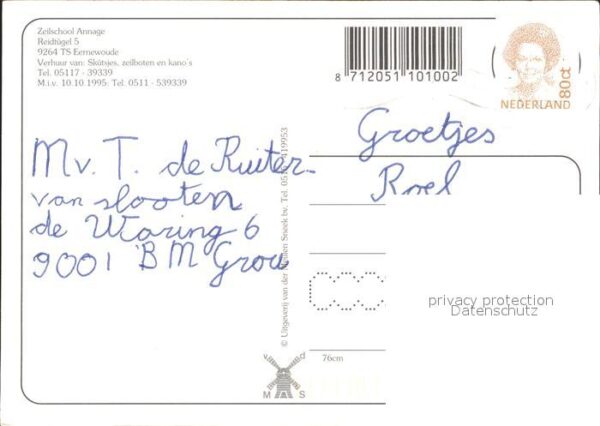 Zeilschool Annage
Reidtûgel 5
9264 TS Eernewoude
Verhuur van: Skûtsjes, zeilboten en kano's
Tel. 05117 - 39339
M.i.v. 10.10.1995: Tel. 0511 - 539339
8 712051 101002
80ct
NEDERLAND
Groetjes
Roel
Mv. T. de Ruiter-
van slooten
de Waring 6
9001 BM Grou
© Uitgeverij van der Meulen Sneek bv. Tel. 419953
privacy protection
Datenschutz
76cm
v d
M S